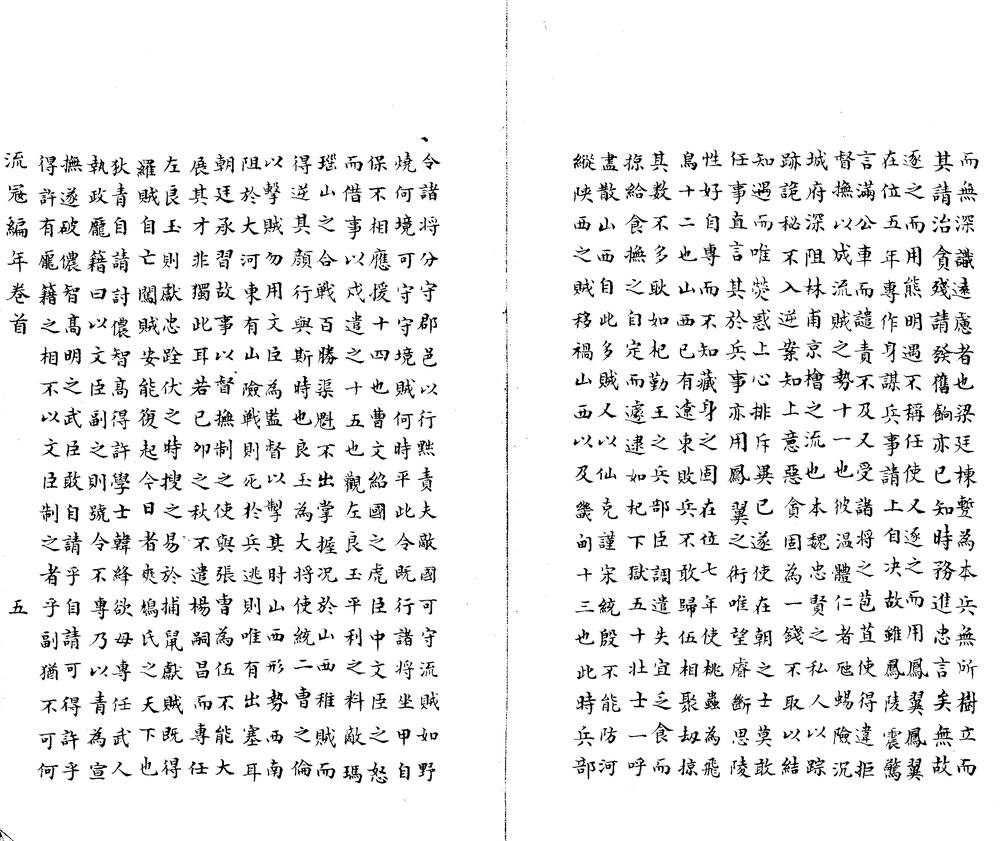 而無深識遠慮者也梁廷棟暫為本兵無所樹立而
其請治貪殘請發舊餉亦已知時務進忠言矣無故
逐之而用熊明遇不稱任使又逐之而用鳳翼鳳翼
在位五年專作身謀兵事請上自决故雖鳳陵震驚
言滿公車而譴責不及又受諸將之苞苴使得違拒
督撫以成流賊之勢十一也彼溫體仁者虺蜴險沉
城府深阻林甫京檜之流也本魏忠賢之私人以踪
跡詭秘不入逆案知上意惡貪固為一錢不取以結
知遇而唯熒惑上心排斥異己遂使在朝之士莫敢
任事直言其於兵事亦用鳳翼之術唯望睿斷思陵
性好自專而不知藏身之固在位七年使桃蟲為飛
鳥十二也山西已有遼東敗兵不敢歸伍相聚刼掠
其数不多耿如杞勤王之兵部臣調遣失宜乏食而
掠給食撫之自定而遽逮如杞下獄五十壯士一呼
盡散山西自此多賊人以仙克謹宋統殷不能防河
縱陝西之賊移禍山西以及畿甸十三也此時兵部
令諸將分守郡邑以行㸃責夫敵國可守流賊如野
燒何境可守守境賊何時平此令既行諸將坐甲自
保不相應援十四也曹文紹國之虎臣中文臣之怒
而借事以戍遣之十五也觀左良玉平利之料敵瑪
瑙山之合戰百勝渠魁不出掌握况於山西稚賊而
得逆其顏行與斯時也良玉為大將使統二曹之倫
以擊賊勿用文臣為監督以掣其肘山西形勢西南
阻於大河東有山險戰則死於兵逃則唯有出塞耳
朝廷承習故事以督撫制之使與張曺為伍不能大
展其才非獨此耳若己卯之秋不遣楊嗣昌而專任
左良玉則獻忠跧伏之時搜之易於捕鼠獻賊既得
羅賊自亡闖賊安能復起今日者爽鳩氏之天下也
狄青自請討儂智高得許學士韓絳欲毋專任武人
執政龐籍曰以文臣副之則號令不專乃以青為宣
撫遂破儂智高明之武臣敢自請乎自請可得許乎
得許有龐籍之相不以文臣制之者乎副猶不可何
流冦編年卷首 五